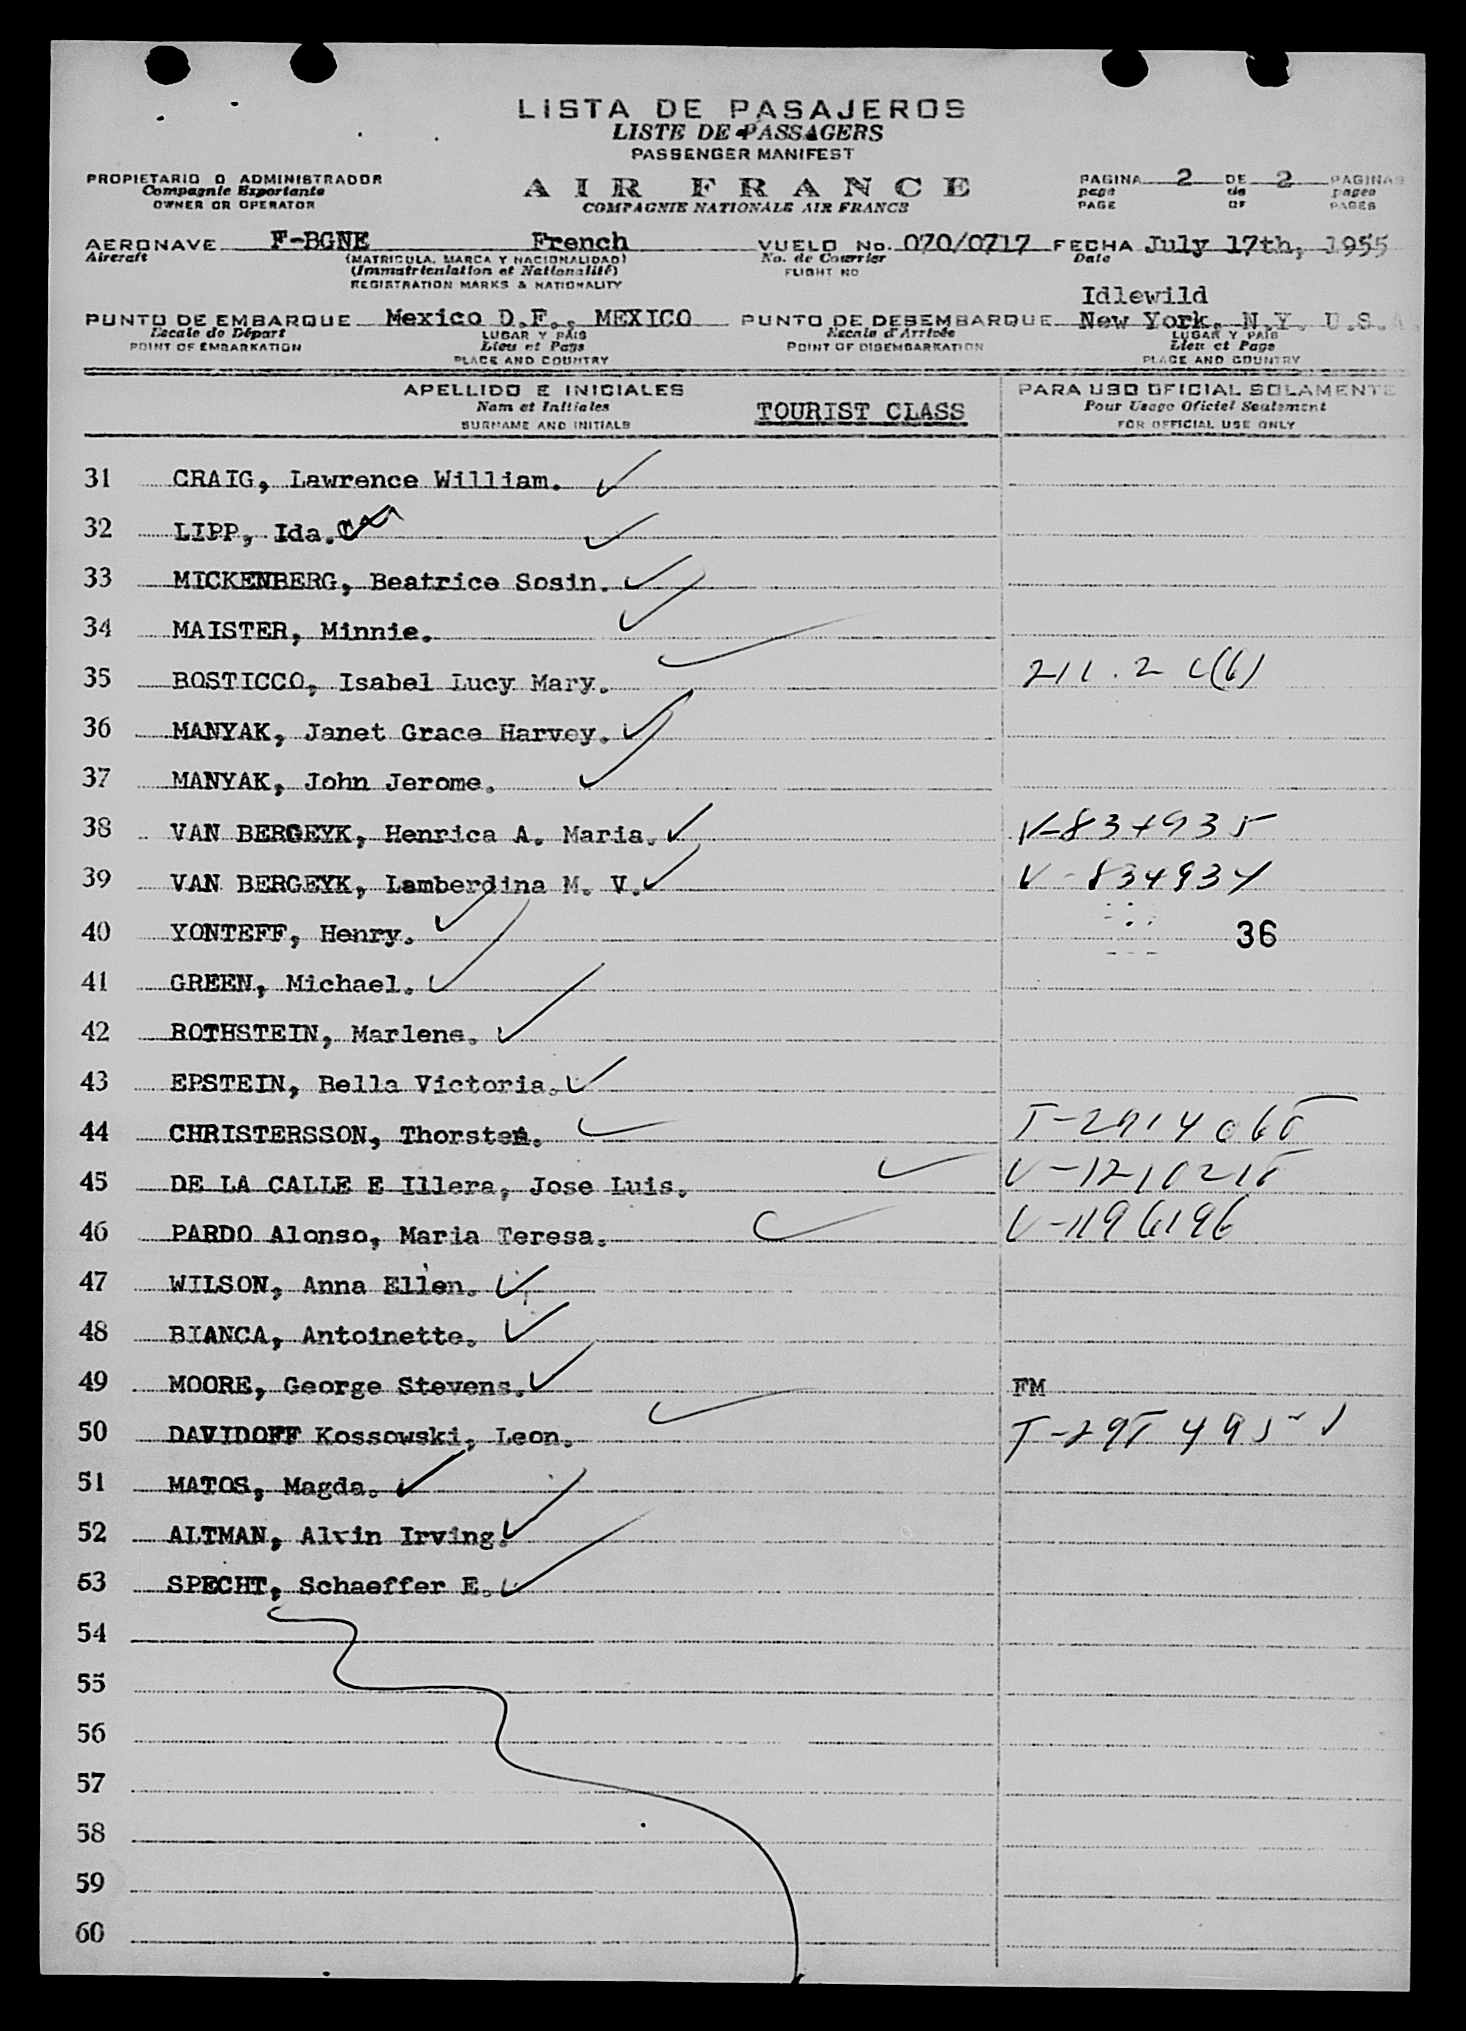 LISTA DE PASAJEROS
LISTE DE PASSAGERS
PASSENGER MANIFEST
PROPIETARIO O ADMINISTRADOR
Compagnie Exportante
OWNER OR OPERATOR
AIR FRANCE
COMPAGNIE NATIONALE AIR FRANCE
PAGINA 2 DE 2 PAGINAS
page de pages
PAGE OF PAGES
AERONAVE F-BGNE French VUELO No. 070/0717 FECHA July 17th, 1955
Aircraft (MATRICULA, MARCA Y NACIONALIDAD) No. de Courrier Date
(Immatriculation et Nationalité) FLIGHT NO
REGISTRATION MARKS & NATIONALITY
Idlewild
PUNTO DE EMBARQUE Mexico D.F., MEXICO PUNTO DE DESEMBARQUE New York, N.Y. U.S.A.
Escale de Départ LUGAR Y PAIS Escale d'Arrivée LUGAR Y PAIS
POINT OF EMBARKATION Lieu et Pays POINT OF DISEMBARKATION Lieu et Pays
PLACE AND COUNTRY PLACE AND COUNTRY
APELLIDO E INICIALES PARA USO OFICIAL SOLAMENTE
Nom et Initiales TOURIST CLASS Pour Usage Oficiel Seulement
SURNAME AND INITIALS FOR OFFICIAL USE ONLY
31 CRAIG, Lawrence William.
32 LIPP, Ida.
33 MICKENBERG, Beatrice Sosin.
34 MAISTER, Minnie.
35 BOSTICCO, Isabel Lucy Mary. 211.2 C(6)
36 MANYAK, Janet Grace Harvey.
37 MANYAK, John Jerome.
38 VAN BERGEYK, Henrica A. Maria. V-834935
39 VAN BERGEYK, Lamberdina M. V. V-834934
40 YONTEFF, Henry. 36
41 GREEN, Michael.
42 ROTHSTEIN, Marlene.
43 EPSTEIN, Bella Victoria.
44 CHRISTERSSON, Thorsten.
45 DE LA CALLE E Illera, Jose Luis.
46 PARDO Alonso, Maria Teresa. V-1196196
47 WILSON, Anna Ellen.
48 BIANCA, Antoinette.
49 MOORE, George Stevens. FM
50 DAVIDOFF Kossowski, Leon.
51 MATOS, Magda.
52 ALTMAN, Alvin Irving.
53 SPECHT, Schaeffer E.
54
55
56
57
58
59
60